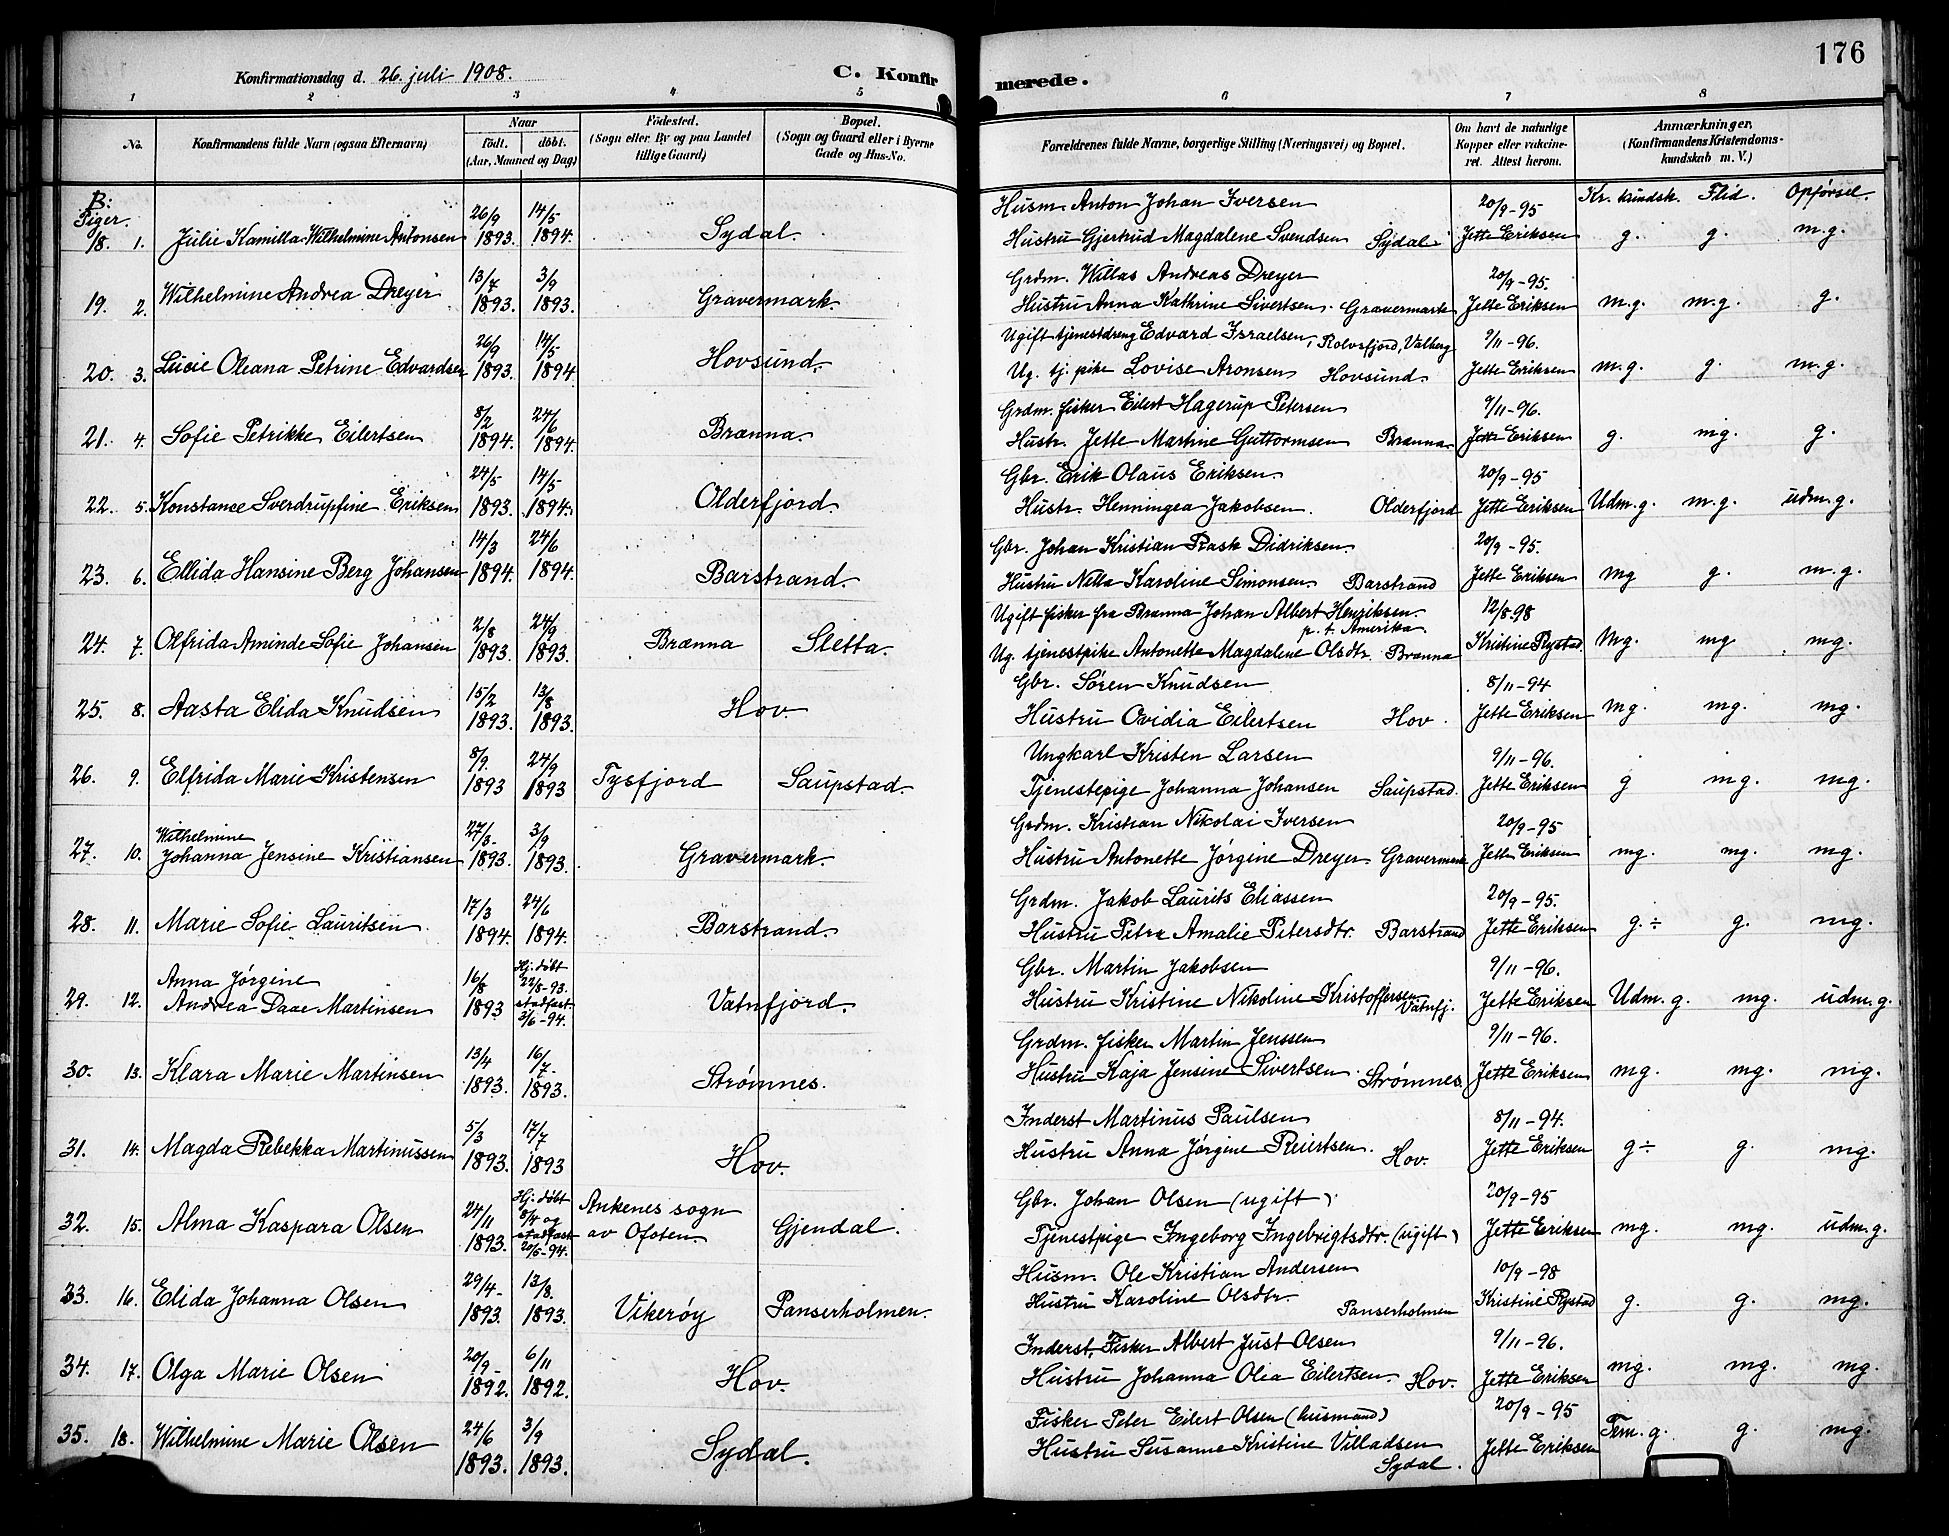 176
Konfirmationsdag d. 26. juli 1908.
C. Konfirmerede.
1 2 3 4 5 6 7 8
No. Konfirmandens fulde Navn (ogsaa Efternavn)
Naar
født. døbt.
(Aar, Maaned og Dag)
Fødested.
(Sogn eller By og paa Landet
tillige Gaard)
Bopæl.
(Sogn og Gaard eller i Byerne
Gade og Hus-No.
Forældrenes fulde Navne, borgerlige Stilling (Næringsvei) og Bopæl.
Om havt de naturlige
Kopper eller vakcine-
ret. Attest herom.
Anmærkninger.
(Konfirmandens Kristendoms-
kundskab m. V.)
B:
Piger.
Kr. kundsk. Flid. Opførsel.
18. 1. Julie Kamilla Wilhelmine Antonsen 26/9 1893. 14/5 1894. Sydal.
Husm. Anton Johan Iversen 20/9-95
Hustru Gjertrud Magdalene Svendsen Sydal Jette Eriksen g. g. m.g.
19. 2. Wilhelmine Andrea Dreyer 13/7 1893. 3/9 1893. Gravermark.
Grdm. Willas Andreas Dreyer 20/9-95.
Hustru Anna Kathrine Sivertsen. Gravermark Jette Eriksen m.g. m.g. g.
20. 3. Lucie Oleana Petrine Edvardsen 26/9 1893. 14/5 1894 Hovsund.
Ugift tjenestdreng Edvard Israelsen, Rolvsfjord, Valberg 9/11-96.
Ug. tj. pike Lovise Aronsen Hovsund. Jette Eriksen m.g. g. m.g.
21. 4. Sofie Petrikke Eilertsen 8/2 1894. 24/6 1894. Brænna.
Grdm. fisker Eilert Hagerup Petersen 9/11-96.
Hustr. Jette Martine Guttormsen Brænna. Jette Eriksen g. mg. g.
22. 5. Konstance Sverdrupfine Eriksen 24/5 1893. 14/5 1894. Olderfjord
Gbr. Erik Olaus Eriksen. 20/9-95
Hustr. Henningea Jakobsen. Olderfjord Jette Eriksen Udm.g. m.g. udm.g.
23. 6. Ellida Hansine Berg Johansen 14/3 1894. 24/6 1894. Barstrand.
Gbr. Johan Kristian Rask Didriksen. 20/9-95.
Hustru Netta Karoline Simonsen Barstrand Jette Eriksen mg g. m.g.
24. 7. Olfrida Aminde Sofie Johansen 2/8 1893. 24/9 1893. Brænna Sletta.
Ugift fisker fra Brænna Johan Albert Henriksen. 12/8-98
p. t. Amerika.
Ug. tjenestpike Antonette Magdalene Olsdtr. Brænna Kristine Rystad Mg. mg mg.
25. 8. Aasta Elida Knudsen 15/2 1893. 13/8 1893. Hov.
Gbr. Søren Knudsen 8/11-94
Hustru Ovidia Eilertsen Hov. Jette Eriksen mg. mg. mg.
26. 9. Elfrida Marie Kristensen 8/9. 1893 24/9 1893 Tysfjord Saupstad.
Ungkarl Kristen Larsen 9/11-96.
Tjenestepige Johanna Johansen Saupstad. Jette Eriksen g mg. mg.
27. 10. Wilhelmine
Johanna Jensine Kristiansen 27/3- 1893. 3/9 1893. Gravermark.
Grdm. Kristian Nikolai Iversen 20/9-95
Hustru Antonette Jørgine Dreyer Gravermark Jette Eriksen mg. mg. mg.
28. 11. Marie Sofie Lauritsen 17/3 1894. 24/6 1894. Barstrand.
Grdm. Jakob Laurits Eliassen 20/9-95.
Hustru Petra Amalie Petersdtr. Barstrand Jette Eriksen g.÷ g. mg.
29. 12. Anna Jørgine
Andrea Daae Martinsen 16/8 1893 Hj. døbt 22/8-93. stadfæst 3/6-94. Vatnfjord.
Gbr. Martin Jakobsen 9/11-96.
Hustru Kristine Nikoline Kristoffersen Vatnfj. Jette Eriksen Udm.g. mg. udm.g.
30. 13. Klara Marie Martinsen 13/4 1893. 16/7- 1893. Strømnes.
Grdm. fisker Martin Jenssen 9/11-96.
Hustru Kaja Jensine Sivertsen. Strømnes. Jette Eriksen mg. mg. mg.
31. 14. Magda Rebekka Martinussen 5/3 1893. 17/7 1893 Hov.
Inderst Martinus Paulsen 8/11-94.
Hustru Anna Jørgine Reiertsen. Hov. Jette Eriksen g÷ g. mg.
32. 15. Alma Kaspara Olsen 24/11 1893. Hj. døbt 8/4 og stadfæst 20/5-94. Ankenes sogn
av Ofoten. Gjendal.
Gbr. Johan Olsen (ugift) 20/9-95
Tjenestpige Ingeborg Ingebrigtsdtr. (ugift) Jette Eriksen mg. mg. udm.g.
33. 16. Elida Johanna Olsen 29/4- 1893. 13/8. 1893. Vikerøy Panserholmen.
Husm. Ole Kristian Andersen 10/9-98
Hustru Karoline Olsdtr. Panserholmen Kristine Rystad g. g. mg.
34. 17. Olga Marie Olsen 20/9- 1892. 6/11 1892. Hov.
Inderst, Fisker Albert Just Olsen 9/11-96.
Hustru Johanna Olea Eilertsen. Hov. Jette Eriksen mg. mg. mg.
35. 18. Wilhelmine Marie Olsen 24/6 1893. 3/9 1893. Sydal.
Fisker Peter Eilert Olsen (husmand) 20/9-95
Hustru Susanne Kristine Villadsen Jette Eriksen Tem. g. g. mg.
Sydal.